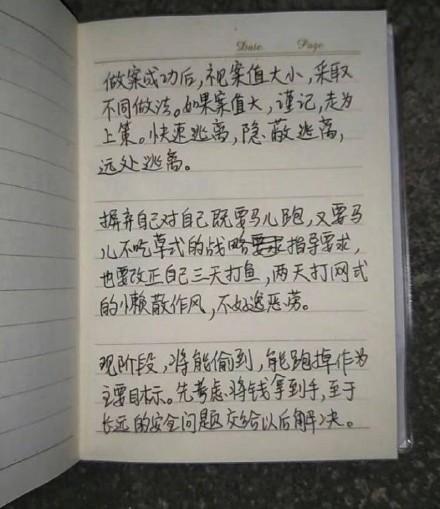 Date Page
做案成功后,视案值大小,采取
不同做法。如果案值大,谨记,走为
上策。快速逃离,隐蔽逃离,
远处逃离。
摒弃自己对自己既要马儿跑,又要马
儿不吃草式的战略指导要求,
也要改正自己三天打鱼,两天打网式
的懒散作风,不好逸恶劳。
现阶段,将能偷到,能跑掉作为
主要目标。先考虑将钱拿到手,至于
长远的安全问题交给以后解决。